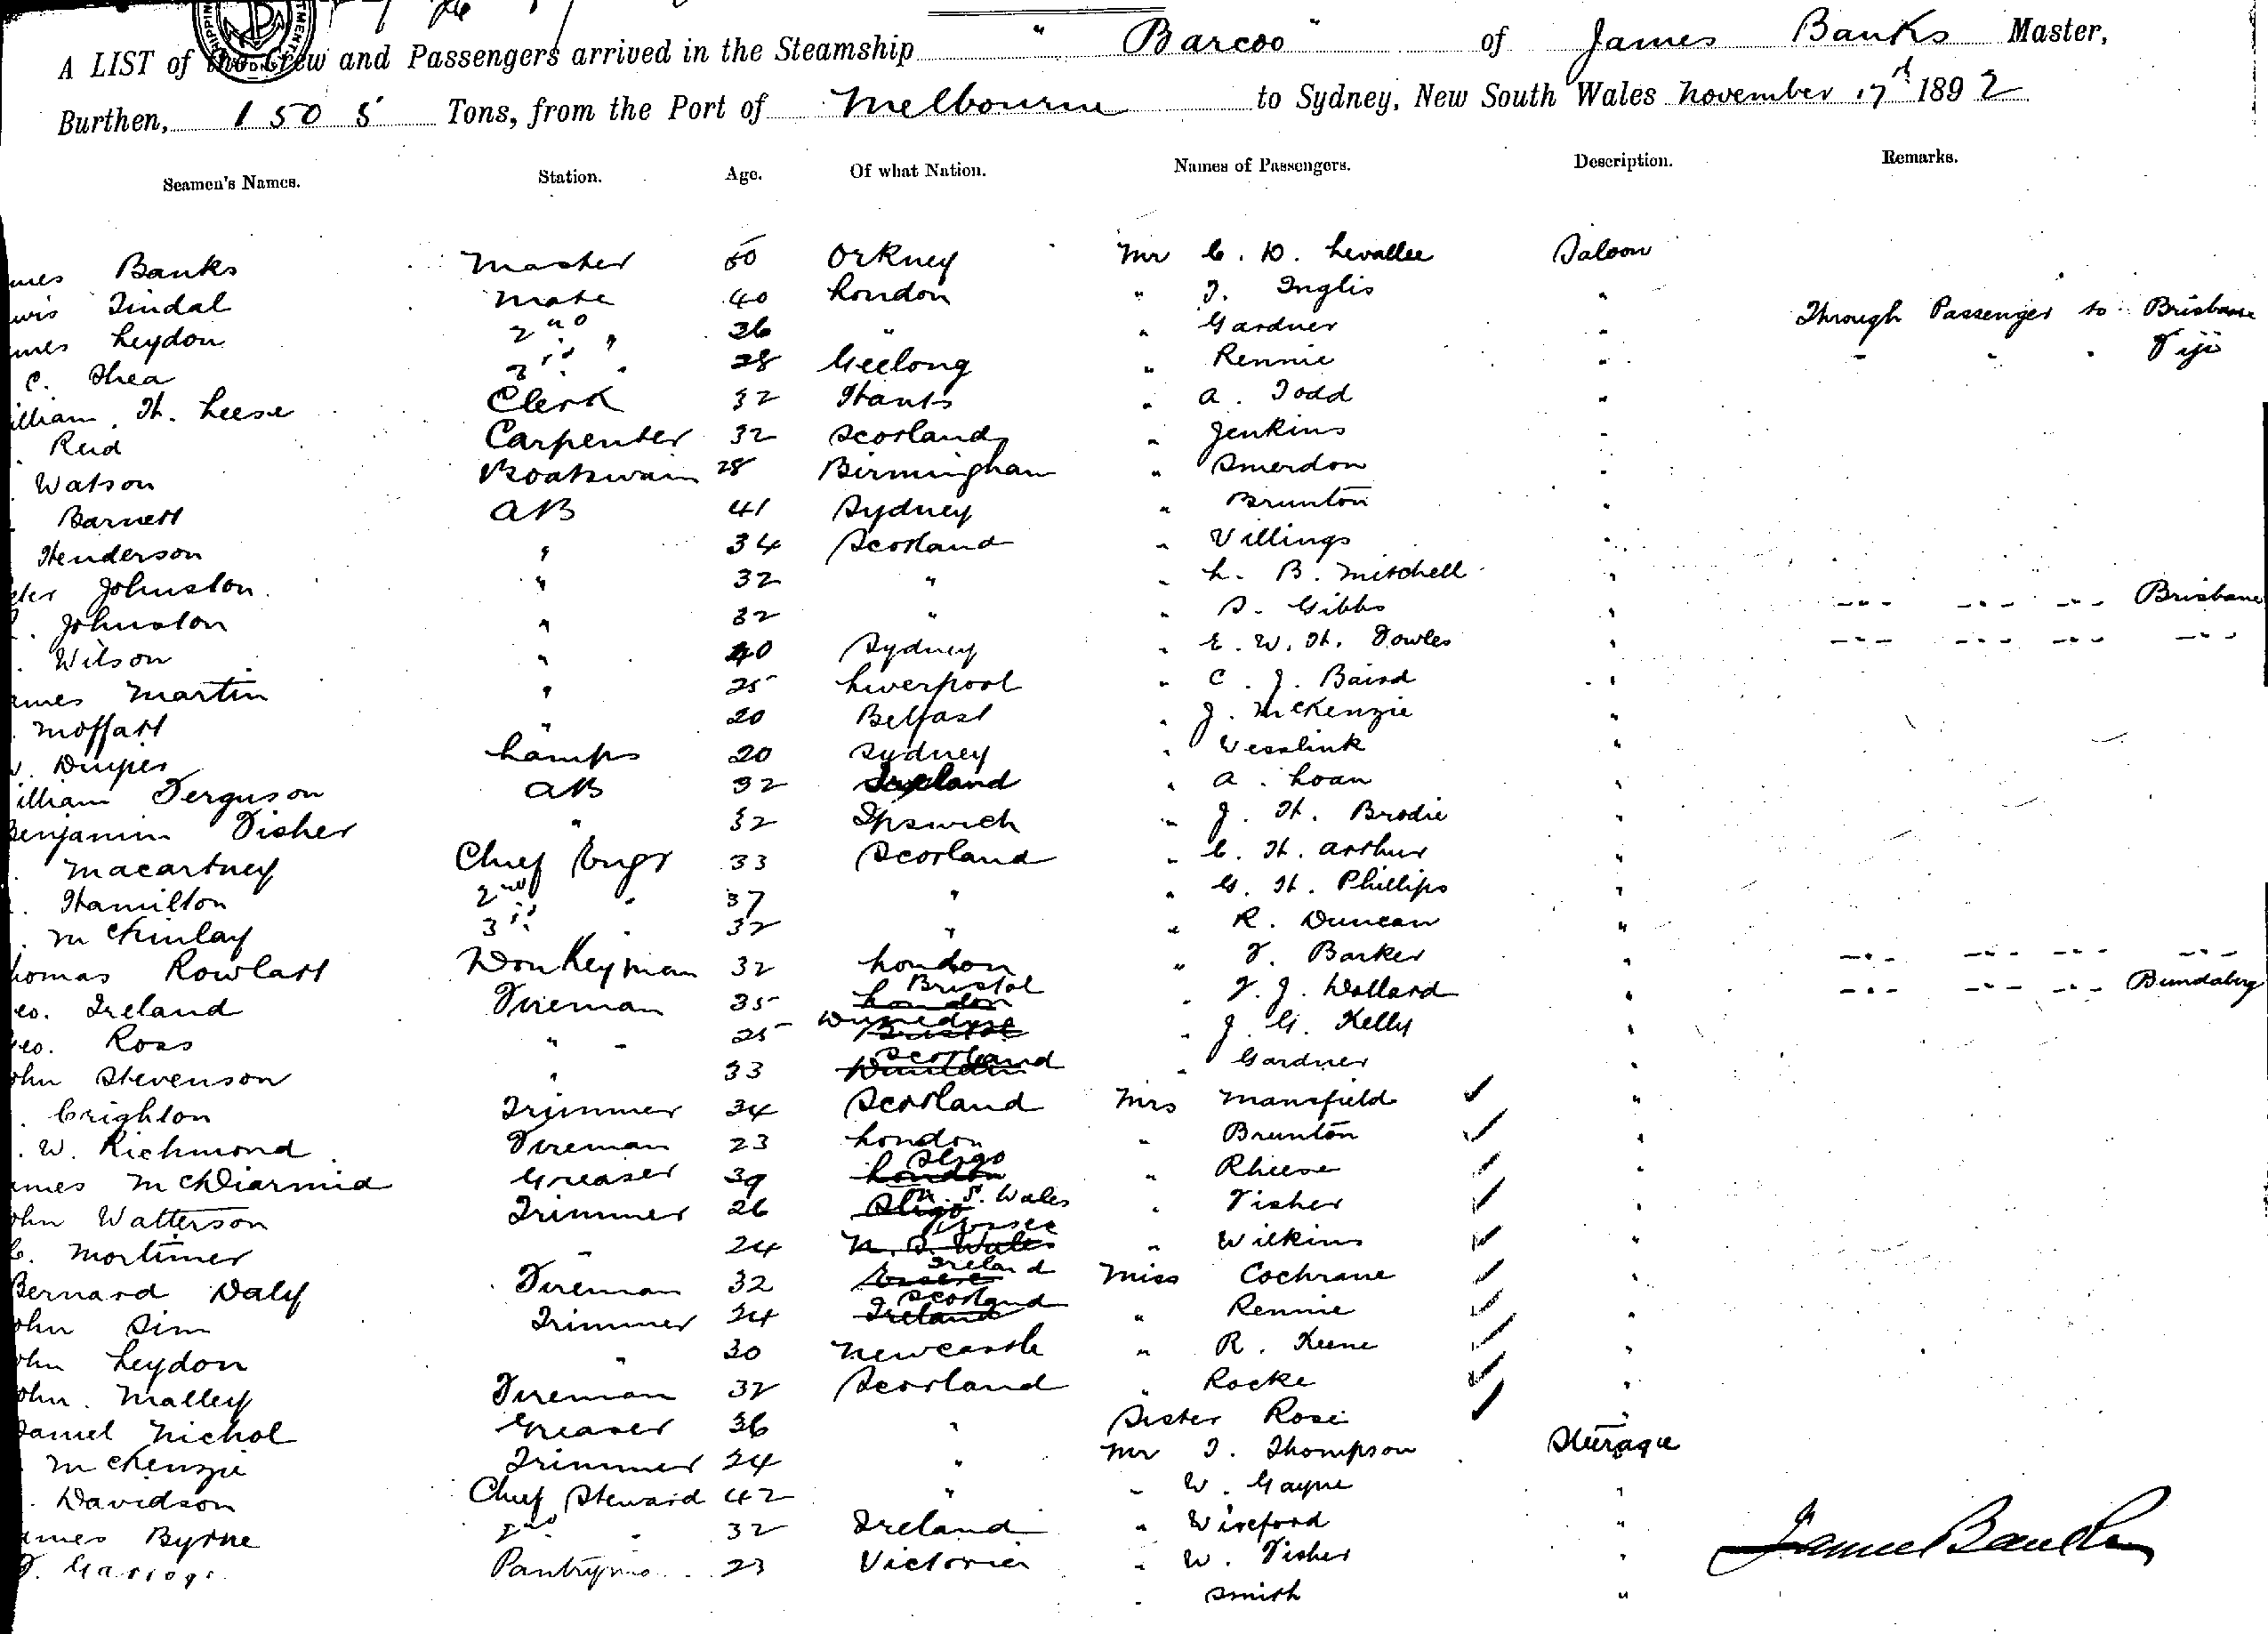 A LIST of the Crew and Passengers arrived in the Steamship " Barcoo " of James Banks Master,
Burthen, 1505 Tons, from the Port of Melbourne to Sydney, New South Wales November 17th 1892
Seamen's Names. Station. Age. Of what Nation. Names of Passengers. Description. Remarks.
mes Banks Master 50 Orkney Mr C. D. Levallee Saloon
wis Tindal Mate 40 London " T. Inglis "
mes Leydon 2nd " 36 " " Gardner " Through Passenger to Brisbane
C. Shea 3rd " 28 Geelong " Rennie " " " " Fiji
illiam H. Leese Clerk 32 Hants " A. Todd "
Reid Carpenter 32 Scotland " Jenkins "
Watson Boatswain 28 Birmingham " Smerdon "
Barnett AB 41 Sydney " Brunton "
Henderson " 34 Scotland " Villings "
ter Johnston " 32 " " L. B. Mitchell "
Johnston " 32 " " S. Gibbs " " " " Brisbane
Wilson " 40 Sydney " E. W. H. Fowles " " " " "
ames Martin " 25 Liverpool " C. J. Baird "
Moffatt " 20 Belfast " J. McKenzie "
Lamps 20 Sydney " Vesslink "
illiam Ferguson AB 32 Ireland " A. Loan "
Benjamin Fisher " 32 Ipswich " J. H. Brodie "
Macartney Chief Engr 33 Scotland " C. H. Arthur "
Hamilton 2nd " 37 " " G. H. Phillips "
McKinlay 3rd " 32 " " R. Duncan "
homas Rowlatt Donkeyman 32 London " F. Barker " " " " "
eo. Ireland Fireman 35 London Bristol " F. J. Wollard " " " " Bundaberg
eo. Ross " 25 Bristol " J. G. Kelly "
ohn Stevenson " 33 Scotland " Gardner "
Crighton Trimmer 34 Scotland Mrs Mansfield "
W. Richmond Fireman 23 London " Brunton "
ames McDiarmid Greaser 39 London Sligo " Rheese "
ohn Watterson Trimmer 26 Sligo N. S. Wales " Fisher "
C. Mortimer " 24 N. S. Wales Essex " Wilkins "
Bernard Daly Fireman 32 Essex Ireland Miss Cochrane "
ohn Sim Trimmer 24 Ireland Scotland " Rennie "
ohn Leydon " 30 Newcastle " R. Keene "
ohn Malley Fireman 32 Scotland " Rocke "
Daniel Nichol Greaser 36 " Sister Rose "
McKenzie Trimmer 24 " Mr T. Thompson Steerage
Davidson Chief Steward 42 " " W. Gayne "
ames Byrne 2nd " 32 Ireland " Wireford "
F. Pantrymn 23 Victoria " W. Fisher "
" Smith "
James Banks